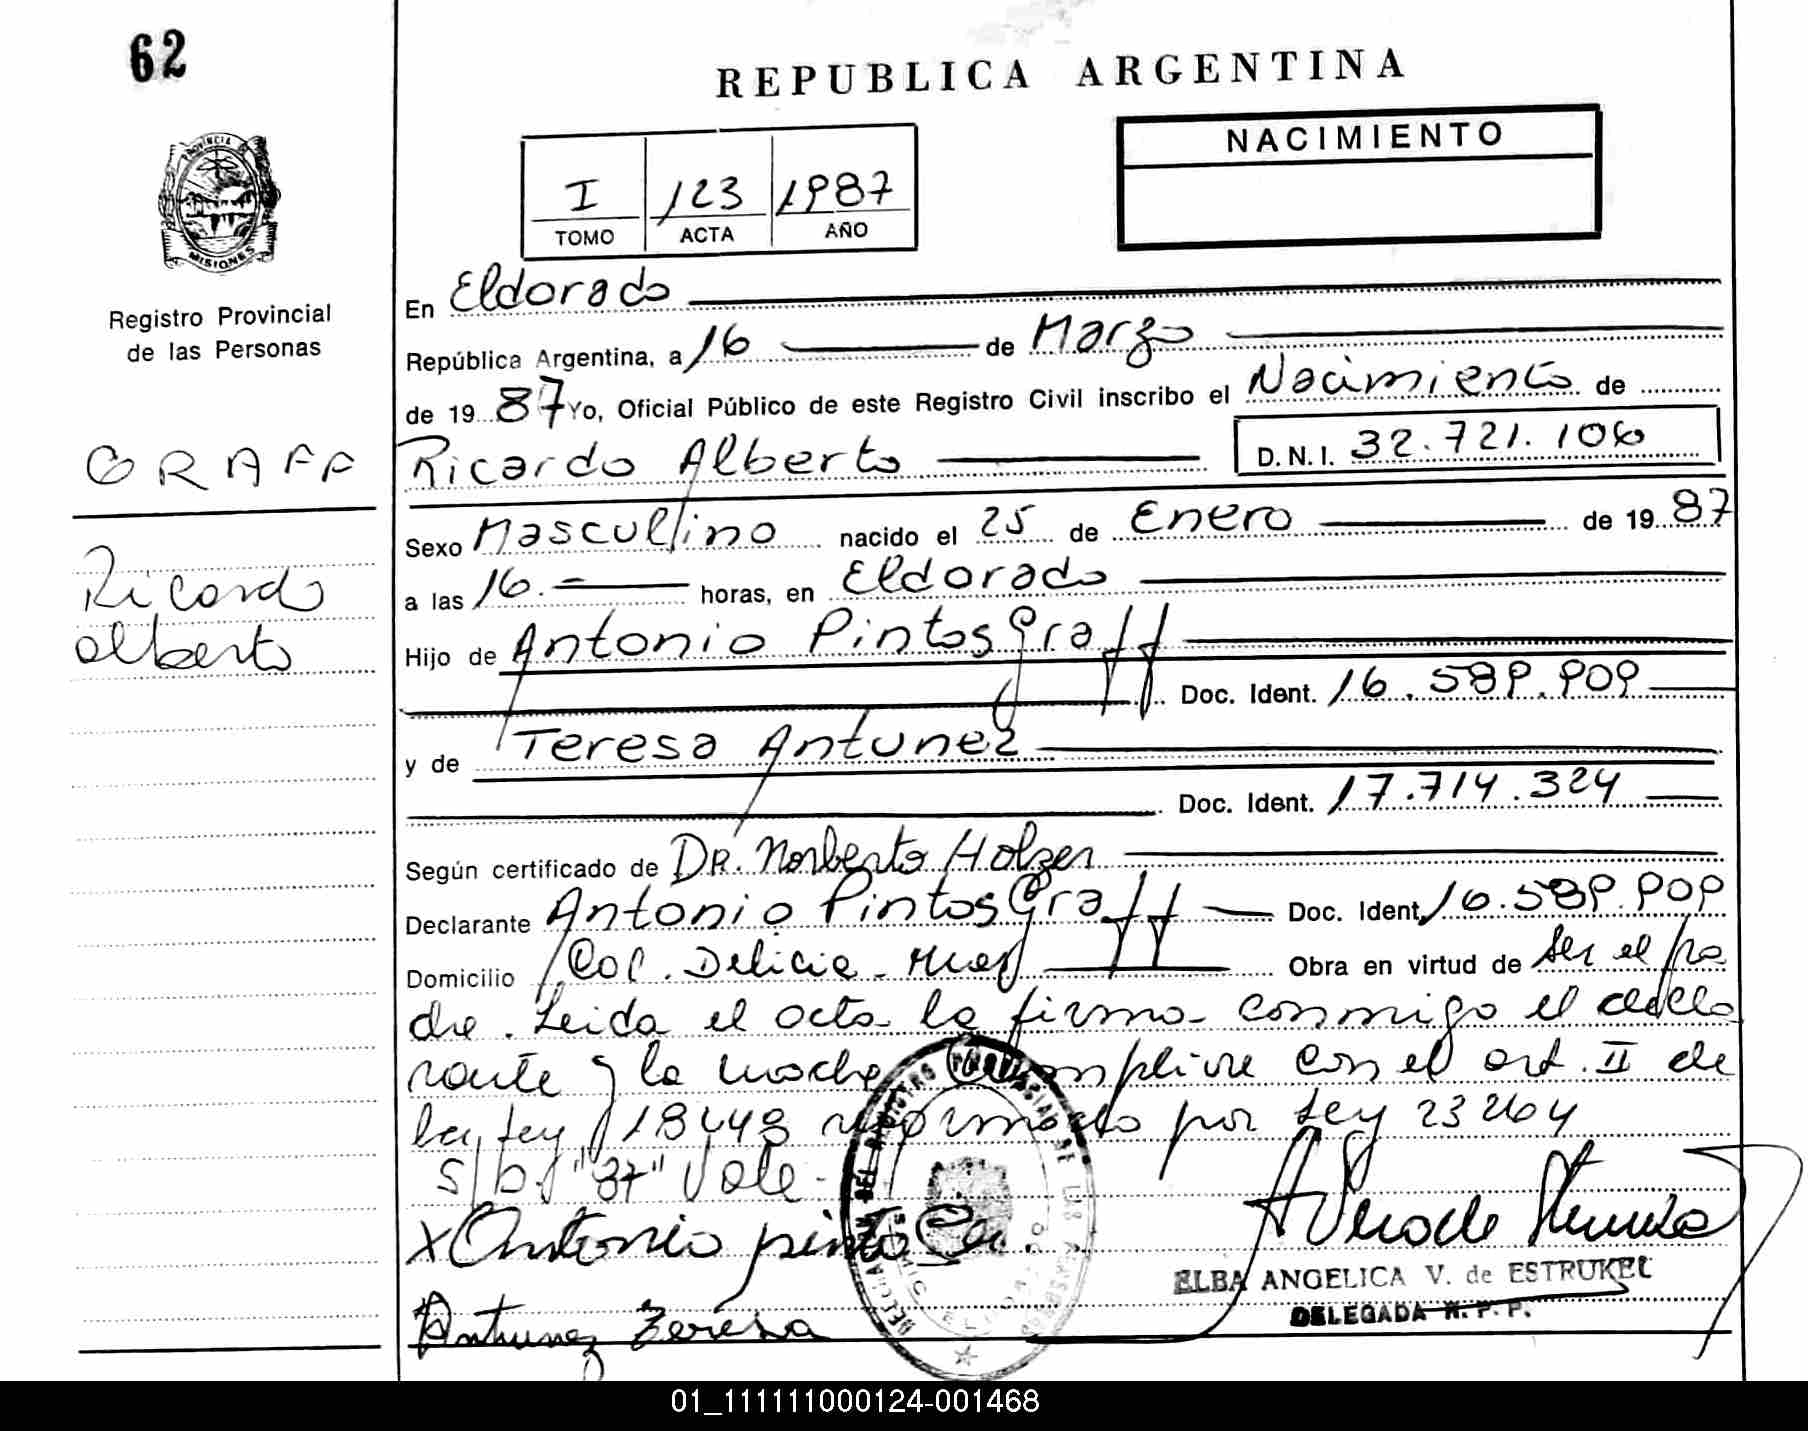 62
REPUBLICA ARGENTINA
NACIMIENTO
I 123 1987
TOMO ACTA AÑO
PROVINCIA
MISIONES
Registro Provincial
de las Personas
GRAFF
Ricardo
Alberto
En Eldorado
República Argentina, a 16 de Marzo
de 19 87 Yo, Oficial Público de este Registro Civil inscribo el Nacimiento de
Ricardo Alberto D.N.I. 32.721.106
Sexo Mascullino nacido el 25 de Enero de 19 87
a las 16.= horas, en Eldorado
Hijo de Antonio Pintos Graff
Doc. Ident. 16.589.909
y de Teresa Antunez
Doc. Ident. 17.714.324
Según certificado de DR. Norberto Holzer
Declarante Antonio Pintos Graff Doc. Ident. 16.589.909
Domicilio Col. Delicia - Mnes Obra en virtud de ser el pa
dre. Leida el acta la firma conmigo el decla
rante y la madre. Cumplíre con el art. II de
la Ley 18448 reformado por Ley 23264
S/b. "87" Vale.
X Antonio pinto
Antunez Teresa
ELBA ANGELICA V. de ESTRUKEL
DELEGADA R. P. P.
01_111111000124-001468